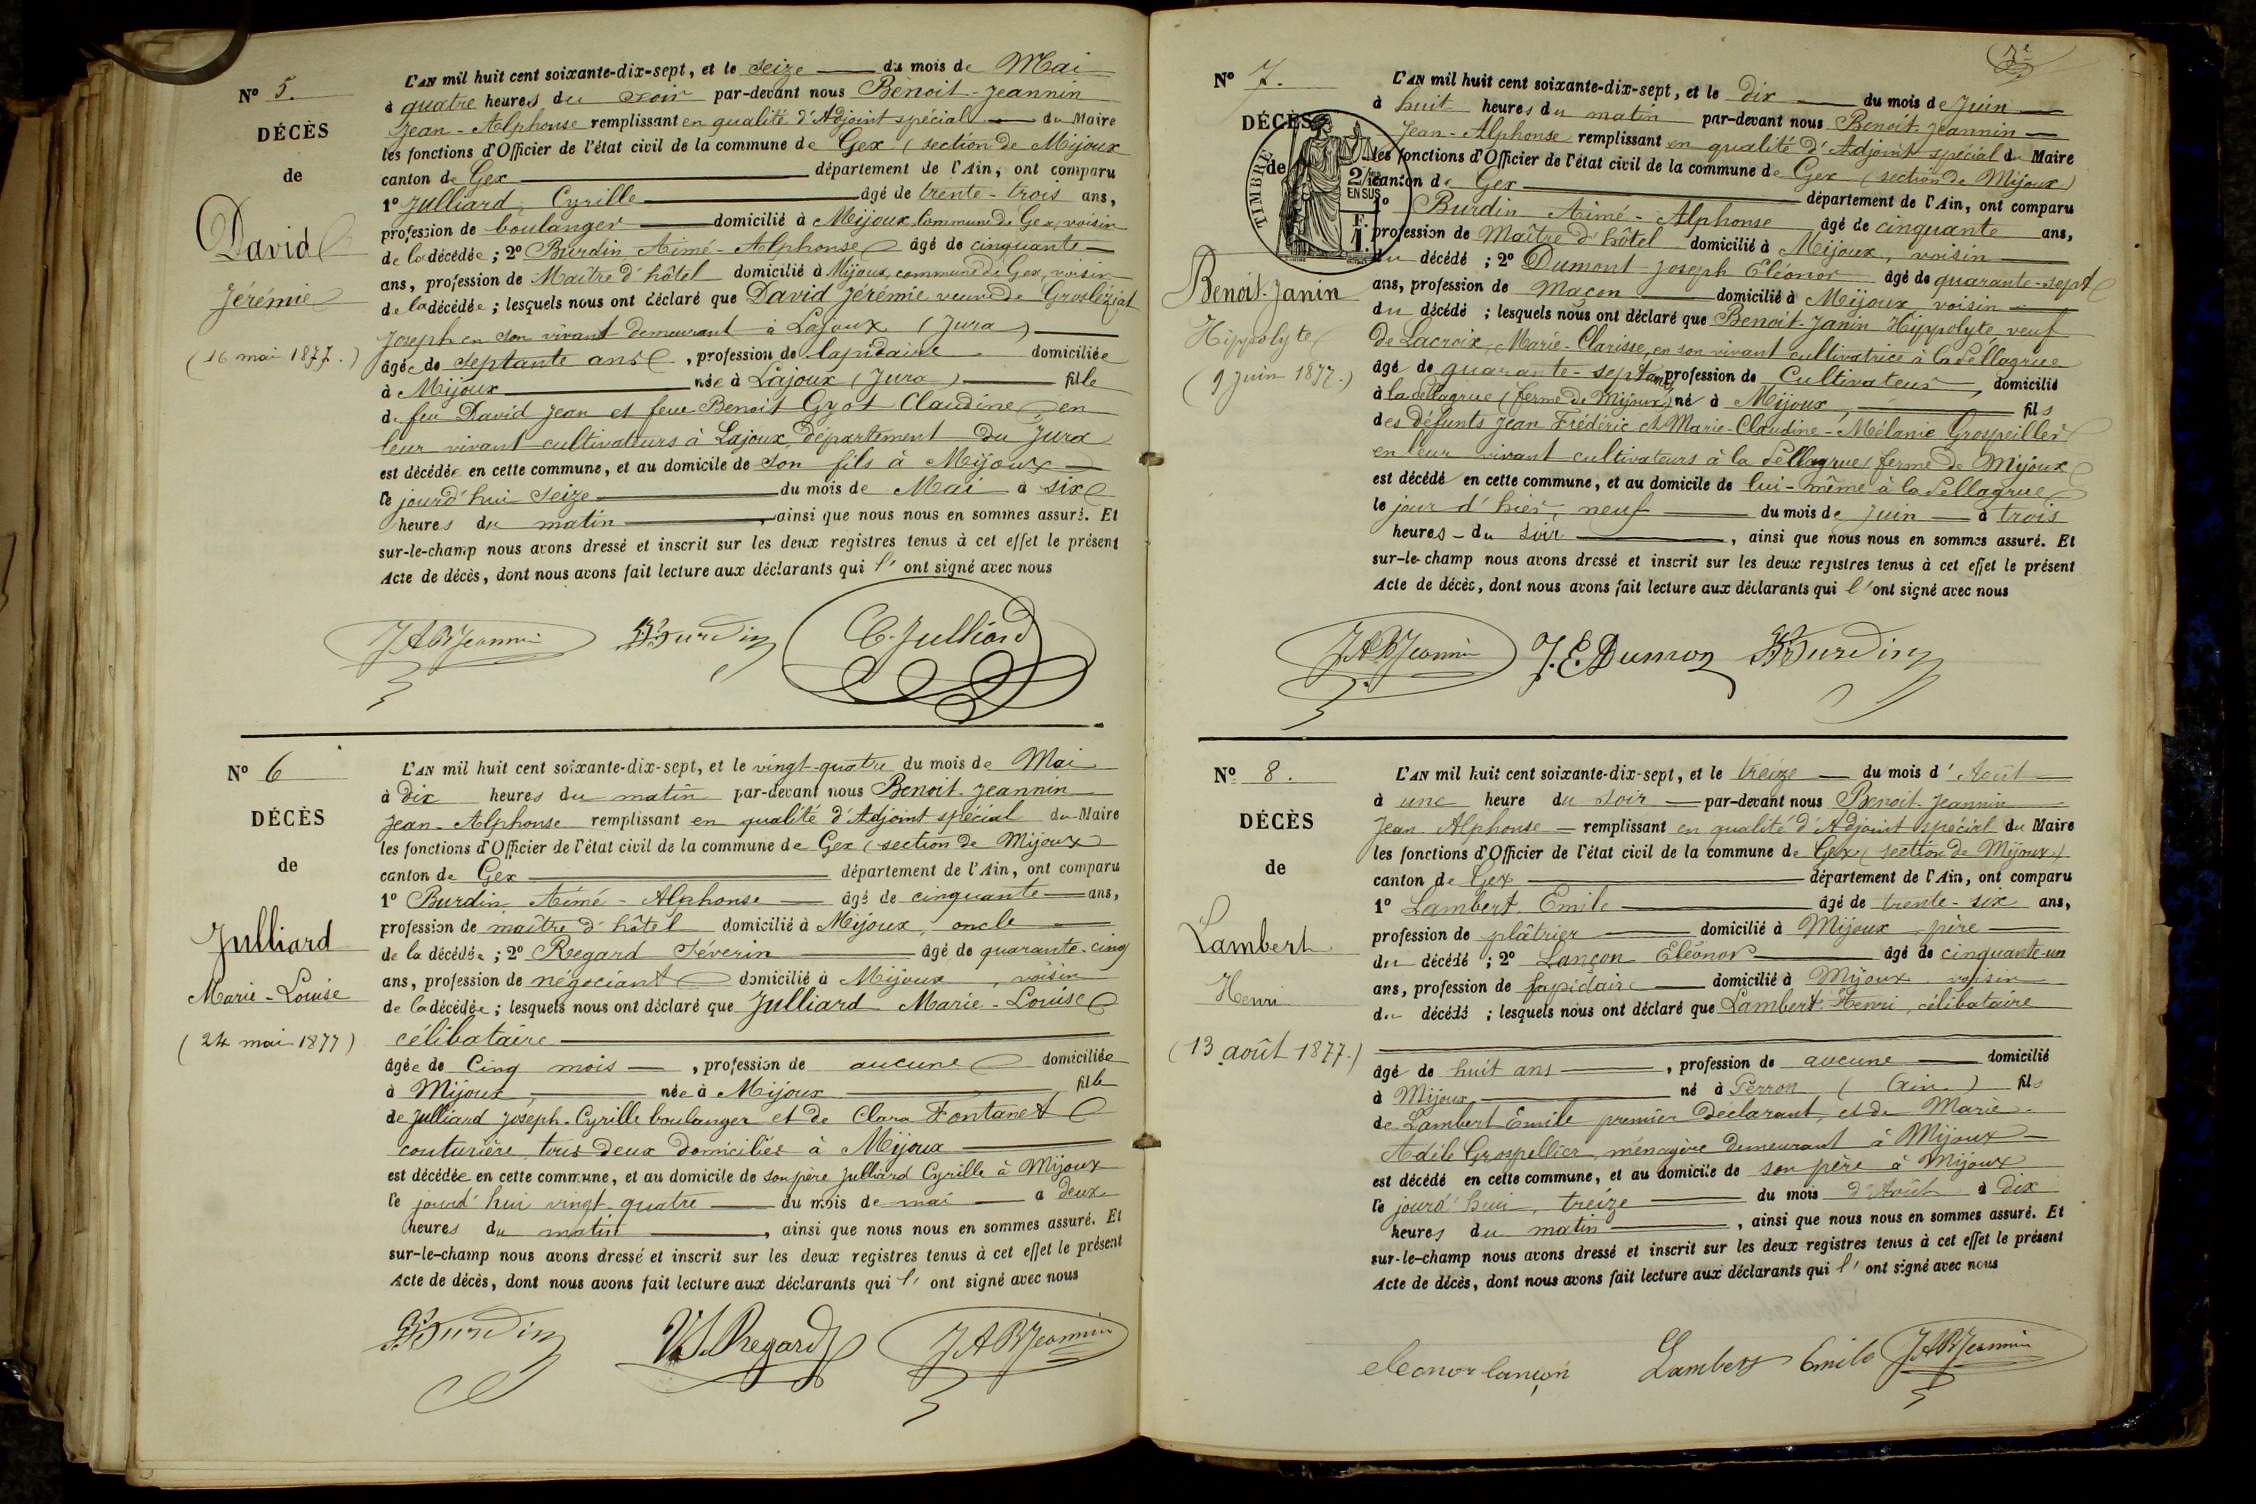 N° 5.
DÉCÈS
de
David
Jérémie
(16 mai 1877.)
L'AN mil huit cent soixante-dix-sept, et le seize du mois de Mai
à quatre heures du soir par-devant nous Benoit-Jeannin
Jean-Alphonse remplissant en qualité d'Adjoint spécial du Maire
les fonctions d'Officier de l'état civil de la commune de Gex (section de Mijoux
canton de Gex département de l'Ain, ont comparu
1° Julliard Cyrille âgé de trente-trois ans,
profession de boulanger domicilié à Mijoux, commune de Gex, voisin
de la décédée ; 2° Burdin Aimé-Alphonse âgé de cinquante
ans, profession de Maître d'hôtel domicilié à Mijoux, commune de Gex, voisin
de la décédée ; lesquels nous ont déclaré que David Jérémie veuve de Groslézéat
Joseph en son vivant demeurant à Lajoux (Jura)
âgée de septante ans, profession de lapidaire domiciliée
à Mijoux née à Lajoux (Jura) fille
de feu David Jean et feue Benoit Gyot Claudine en
leur vivant cultivateurs à Lajoux, département du Jura
est décédée en cette commune, et au domicile de son fils à Mijoux
le jourd'hui seize du mois de Mai à six
heures du matin, ainsi que nous nous en sommes assuré. Et
sur-le-champ nous avons dressé et inscrit sur les deux registres tenus à cet effet le présent
Acte de décès, dont nous avons fait lecture aux déclarants qui l' ont signé avec nous
JABJeannin Burdin C. Julliard
N° 6
DÉCÈS
de
Julliard
Marie-Louise
(24 mai 1877)
L'AN mil huit cent soixante-dix-sept, et le vingt-quatre du mois de Mai
à dix heures du matin par-devant nous Benoit-Jeannin
Jean-Alphonse remplissant en qualité d'Adjoint spécial du Maire
les fonctions d'Officier de l'état civil de la commune de Gex (section de Mijoux
canton de Gex département de l'Ain, ont comparu
1° Burdin Aimé-Alphonse âgé de cinquante ans,
profession de maître d'hôtel domicilié à Mijoux, oncle
de la décédée ; 2° Regard Séverin âgé de quarante-cinq
ans, profession de négociant domicilié à Mijoux, voisin
de la décédée ; lesquels nous ont déclaré que Julliard Marie-Louise
célibataire
âgée de Cinq mois, profession de aucune domiciliée
à Mijoux, née à Mijoux fille
de Julliard Joseph-Cyrille boulanger et de Clara Fontanet
couturière tous deux domiciliés à Mijoux
est décédée en cette commune, et au domicile de son père Julliard Cyrille à Mijoux
le jourd'hui vingt-quatre du mois de mai à deux
heures du matin, ainsi que nous nous en sommes assuré. Et
sur-le-champ nous avons dressé et inscrit sur les deux registres tenus à cet effet le présent
Acte de décès, dont nous avons fait lecture aux déclarants qui l' ont signé avec nous
Burdin VS.Regard JABJeannin
N° 7.
DÉCÈS
de
TIMBRE
2/10
EN SUS
F.
1.
Benoit-Janin
Hippolyte
(9 juin 1877.)
L'AN mil huit cent soixante-dix-sept, et le dix du mois de Juin
à huit heures du matin par-devant nous Benoit-Jeannin
Jean-Alphonse remplissant en qualité d'Adjoint spécial du Maire
les fonctions d'Officier de l'état civil de la commune de Gex (section de Mijoux)
canton de Gex département de l'Ain, ont comparu
1° Burdin Aimé-Alphonse âgé de cinquante ans,
profession de Maître d'hôtel domicilié à Mijoux, voisin
du décédé ; 2° Dumont Joseph Eléonor âgé de quarante-sept
ans, profession de Maçon domicilié à Mijoux voisin
du décédé ; lesquels nous ont déclaré que Benoit-Janin Hippolyte, veuf
de Lacroix, Marie-Clarisse, en son vivant cultivatrice à la Pellagrue
âgé de quarante-sept ans profession de Cultivateur, domicilié
à la Pellagrue (ferme de Mijoux) né à Mijoux, fils
des défunts Jean Frédéric et Marie-Claudine-Mélanie Grospeiller
en leur vivant cultivateurs à la Pellagrue, ferme de Mijoux
est décédé en cette commune, et au domicile de lui-même à la Pellagrue
le jour d'hier, neuf du mois de Juin à trois
heures du soir, ainsi que nous nous en sommes assuré. Et
sur-le-champ nous avons dressé et inscrit sur les deux registres tenus à cet effet le présent
Acte de décès, dont nous avons fait lecture aux déclarants qui l' ont signé avec nous
JABJeannin J.E.Dumon Burdin
N° 8.
DÉCÈS
de
Lambert
Henri
(13 août 1877.)
L'AN mil huit cent soixante-dix-sept, et le treize du mois d'Août
à une heure du soir par-devant nous Benoit-Jeannin
Jean Alphonse remplissant en qualité d'Adjoint spécial du Maire
les fonctions d'Officier de l'état civil de la commune de Gex (section de Mijoux)
canton de Gex département de l'Ain, ont comparu
1° Lambert Emile âgé de trente-six ans,
profession de plâtrier domicilié à Mijoux père
du décédé ; 2° Lançon Eléonor âgé de cinquante-un
ans, profession de lapidaire domicilié à Mijoux voisin
du décédé ; lesquels nous ont déclaré que Lambert Henri, célibataire
âgé de huit ans, profession de aucune domicilié
à Mijoux né à Perron (Ain) fils
de Lambert Emile premier déclarant, et de Marie
Adèle Grospellier, ménagère demeurant à Mijoux
est décédé en cette commune, et au domicile de son père à Mijoux
le jourd'hui, treize du mois d'Août à dix
heures du matin, ainsi que nous nous en sommes assuré. Et
sur-le-champ nous avons dressé et inscrit sur les deux registres tenus à cet effet le présent
Acte de décès, dont nous avons fait lecture aux déclarants qui l' ont signé avec nous
eleonor lançon Lambert Emile JABJeannin